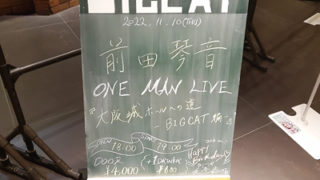 BIGCAT
2022.11.10(Thu)
前田琴音
ONE MAN LIVE
『大阪城ホールへの道
-BIGCAT編-』
OPEN 18:00 START 19:00
DOOR (+1DRINK
¥4,000 ¥600)
Happy
Birthday